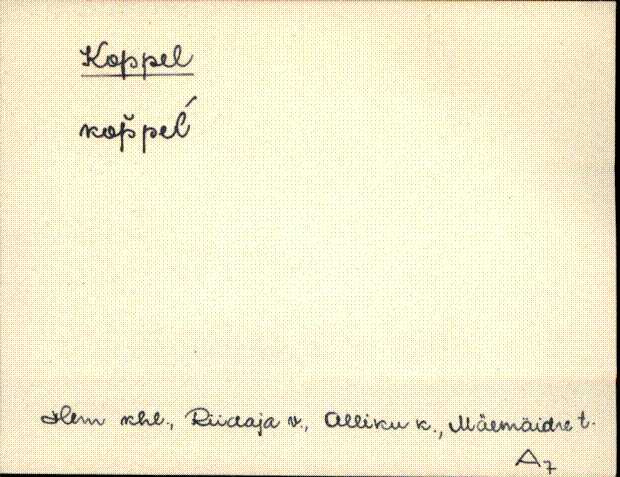 Koppel
kop̆peĺ
Hem khl., Riidaja v., Alliku k., Mäemäidre t.
A7